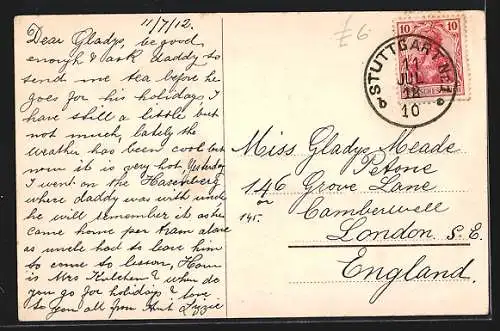 11/7/12.
Dear Gladys, be good
enough & ask daddy to
send me tea before he
goes for his holiday, I
have still a little but
not much, lately the
weather has been cool but
now it is very hot, Yesterday
I went on the Hasenberg
where daddy was with uncle
he will remember it as he
came home per tram alone
as uncle had to leave him
to come to lesson, How
is Mrs Kutchen & when do
you go for holiday? & love
to you all from Aunt Lizzie
£6
10 10
STUTTGART
11
JUL
12
10
b b
Miss Gladys Meade
Petone
146 Grove Lane
or
145.
Camberwell
London. S. E.
England.